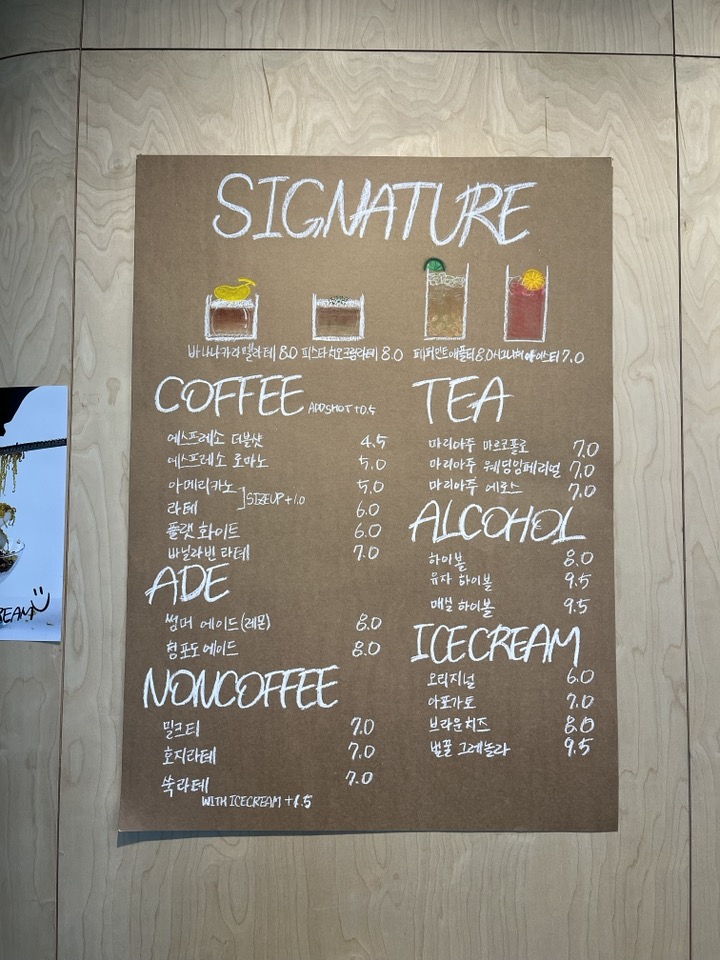 SIGNATURE
바나나카라멜라테 8.0 피스타치오크림라테 8.0 페퍼민트애플티 8.0 시그니처아이스티 7.0
COFFEE ADD SHOT +0.5
에스프레소 더블샷 4.5
에스프레소 로마노 5.0
아메리카노 5.0
라테 6.0
SIZE UP +1.0
플랫 화이트 6.0
바닐라빈 라테 7.0
ADE
썸머 에이드(레몬) 8.0
청포도에이드 8.0
NONCOFFEE
밀크티 7.0
호지라테 7.0
쑥라테 7.0
WITH ICECREAM +1.5
TEA
마리아쥬 마르코폴로 7.0
마리아쥬 웨딩임페리얼 7.0
마리아쥬 에로스 7.0
ALCOHOL
하이볼 8.0
유자 하이볼 9.5
매실 하이볼 9.5
ICECREAM
오리지널 6.0
아포가토 7.0
브라운치즈 8.0
벌꿀 그레놀라 9.5
REAM